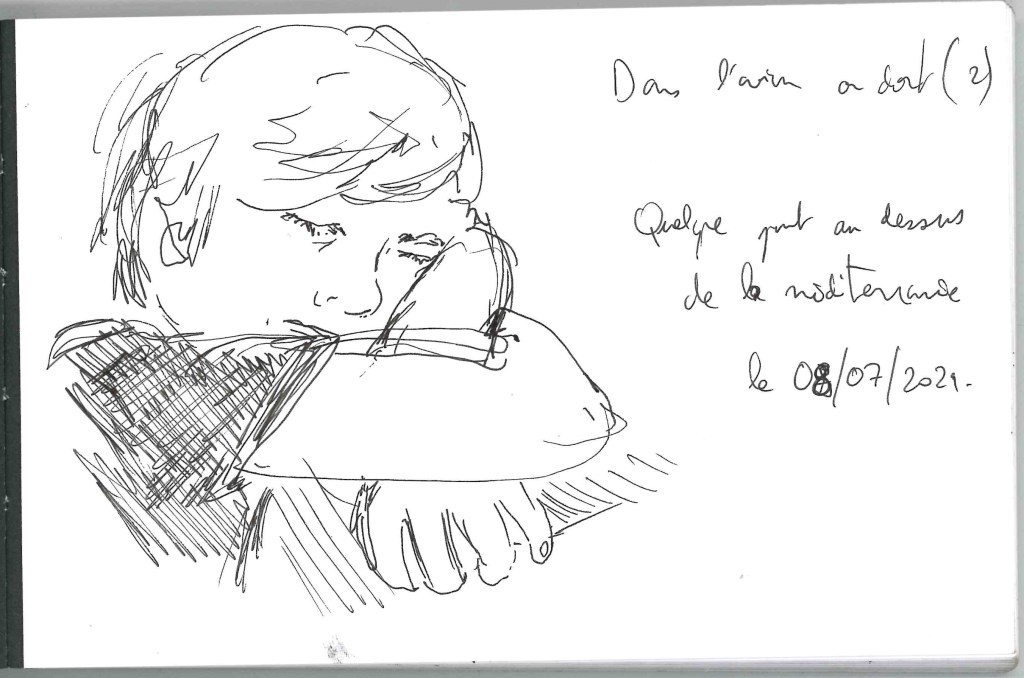 Dans l'avion on dort (2)
Quelque part au dessus
de la méditerranée
le 08/07/2021.